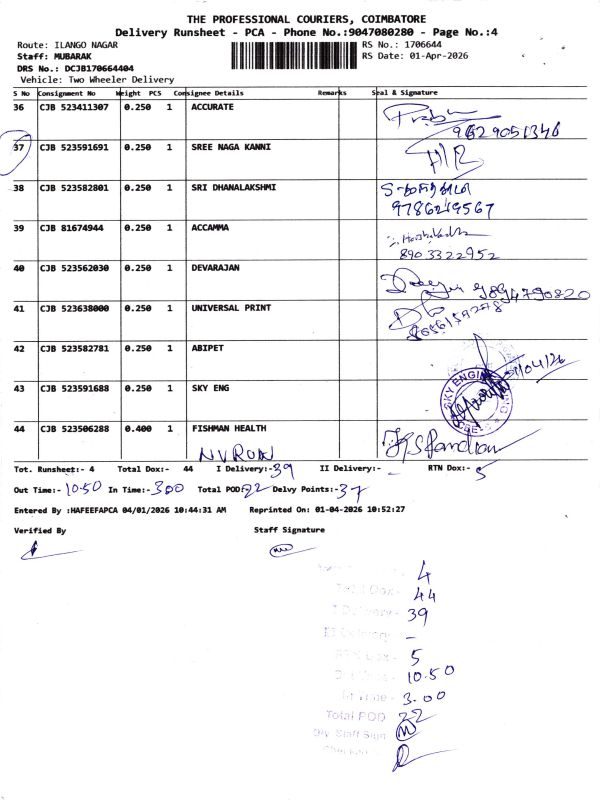 THE PROFESSIONAL COURIERS, COIMBATORE
Delivery Runsheet - PCA - Phone No.:9047080280 - Page No.:4
Route: ILANGO NAGAR RS No.: 1706644
Staff: MUBARAK RS Date: 01-Apr-2026
DRS No.: DCJB170664404
Vehicle: Two Wheeler Delivery
S No Consignment No Weight PCS Consignee Details Remarks Seal & Signature
36 CJB 523411307 0.250 1 ACCURATE
9629051346
37 CJB 523591691 0.250 1 SREE NAGA KANNI
38 CJB 523582801 0.250 1 SRI DHANALAKSHMI
9786219567
39 CJB 81674944 0.250 1 ACCAMMA
8903322952
40 CJB 523562030 0.250 1 DEVARAJAN
9894790820
41 CJB 523638000 0.250 1 UNIVERSAL PRINT
42 CJB 523582781 0.250 1 ABIPET
1/04/26
43 CJB 523591688 0.250 1 SKY ENG
SKY ENGINEERING
44 CJB 523506288 0.400 1 FISHMAN HEALTH
Tot. Runsheet:- 4 Total Dox:- 44 I Delivery:-39 II Delivery:- - RTN Dox:- 5
Out Time:-10.50 In Time:-3.00 Total POD:-22 Delvy Points:-37
Entered By :HAFEEFAPCA 04/01/2026 10:44:31 AM Reprinted On: 01-04-2026 10:52:27
Verified By Staff Signature
4
Total Dox- 44
I Delivery- 39
II Delivery- -
RTN Dox- 5
Out Time- 10.50
In Time- 3.00
Total POD 22
Dly. Staff Sign